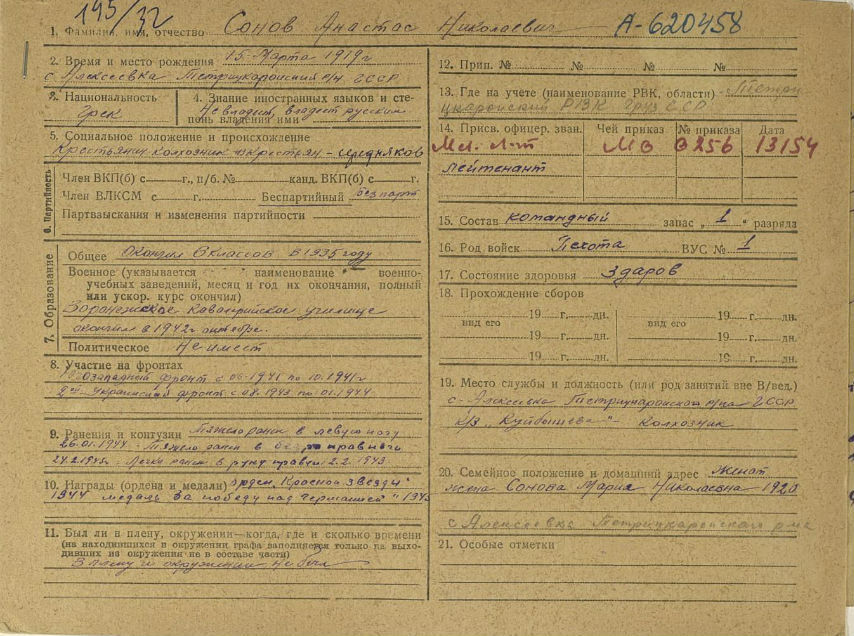 195/32
1. Фамилия, имя, отчество Сонов Анастас Николаевич А-620458
2. Время и место рождения 15 Марта 1919 г
с Алексеевка Тетрицкаройский р/н ГССР
3. Национальность
Грек
4. Знание иностранных языков и степень владения ими
Не владеет, владеет русским
5. Социальное положение и происхождение
Крестьянин колхозник из крестьян - середняков
6. Партийность
Член ВКП(б) с г., п/б. № канд. ВКП(б) с г.
Член ВЛКСМ с г. Беспартийный беспарт
Партвзыскания и изменения партийности
7. Образование
Общее Окончил 6 классов в 1935 году
Военное (указывается наименование военно-
учебных заведений, месяц и год их окончания, полный
или ускор. курс окончил)
Кавалерийское училище
окончил в 1942 г октябре.
Политическое Не имеет
8. Участие на фронтах
Западный фронт с 06-1941 по 10.1941 г
2ой Украинский фронт с 08.1943 по 01.1944
9. Ранения и контузии Тяжело ранен в левую ногу
26.01.1944. Тяжело ранен в бедро правого
Легко ранен в руку правую 2.2.1943
10. Награды (ордена и медали) орден "Красной звезды"
1944 медаль "За победу над Германией" 1945
11. Был ли в плену, окружении—когда, где и сколько времени
(на находившихся в окружении графа заполняется только на выхо-
дивших из окружения не в составе части)
В плену и окружении не был
12. Прип. № № № №
13. Где на учете (наименование РВК, области) - Тетри
цкаройский РВК Груз ССР
14. Присв. офицер. зван. Чей приказ № приказа Дата
Мл. л-т МВ 0256 13154
лейтенант
15. Состав командный запас „1“ разряда
16. Род войск Пехота ВУС № 1
17. Состояние здоровья здаров
18. Прохождение сборов
19 г. дн. 19 г. дн.
вид его вид его
19 г. дн. 19 г. дн.
19 г. дн. 19 г. дн.
19. Место службы и должность (или род занятий вне В/вед.)
с. Алексеевка Тетрицкаройского р/на ГССР
к/з „Куйбышева“ Колхозник
20. Семейное положение и домашний адрес Женат
жена Сонова Мария Николаевна 1920
с Алексеевка Тетрицкаройского р-на
21. Особые отметки